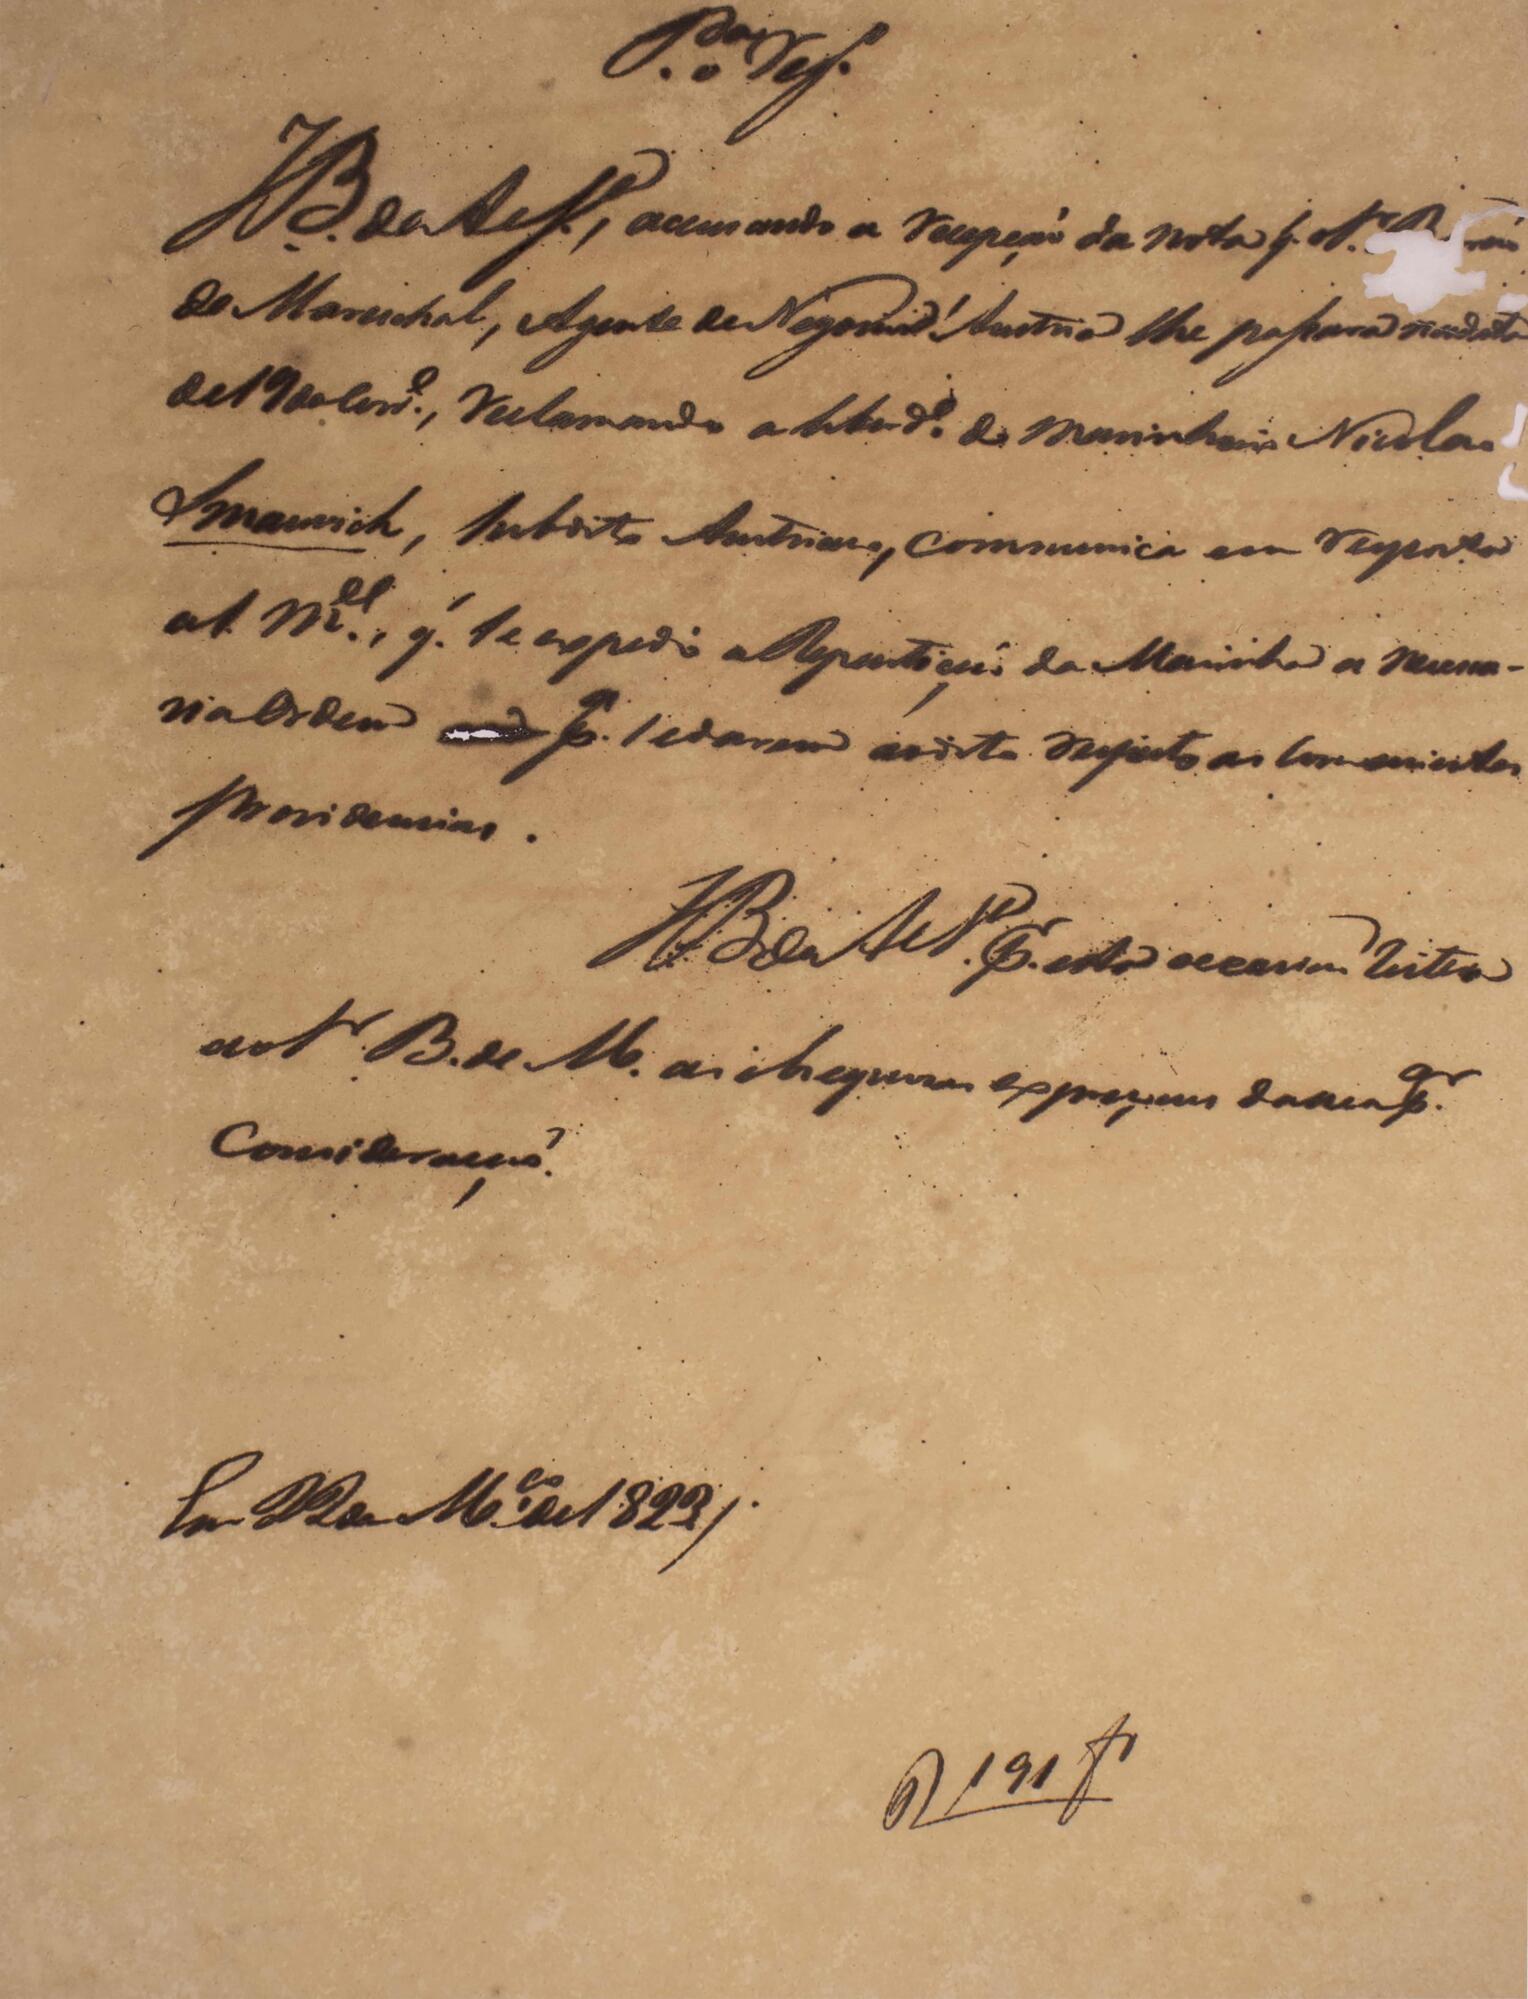 J. B. de A. e S.ª, accusando a recepção da nota q. o S.r B
de Mareschal, Agente de Negocios d'Austria lhe passara na data
de 19 do Corr.e, reclamando a liberd.e do Marinheiro Nicolao
Smaurich, subdito Austriaco, communica em resposta
ao S. M.el, q. se expedio a Repartição da Marinha a necessa-
ria Ordem p.a se darem a respeito as convenientes
providencias.
J. B. de A. e S.ª p.r esta occasião reitera
ao S.r B. de M. as expressoens da sua p.ar
Consideração.
Em 22 de M.ço de 1822
191